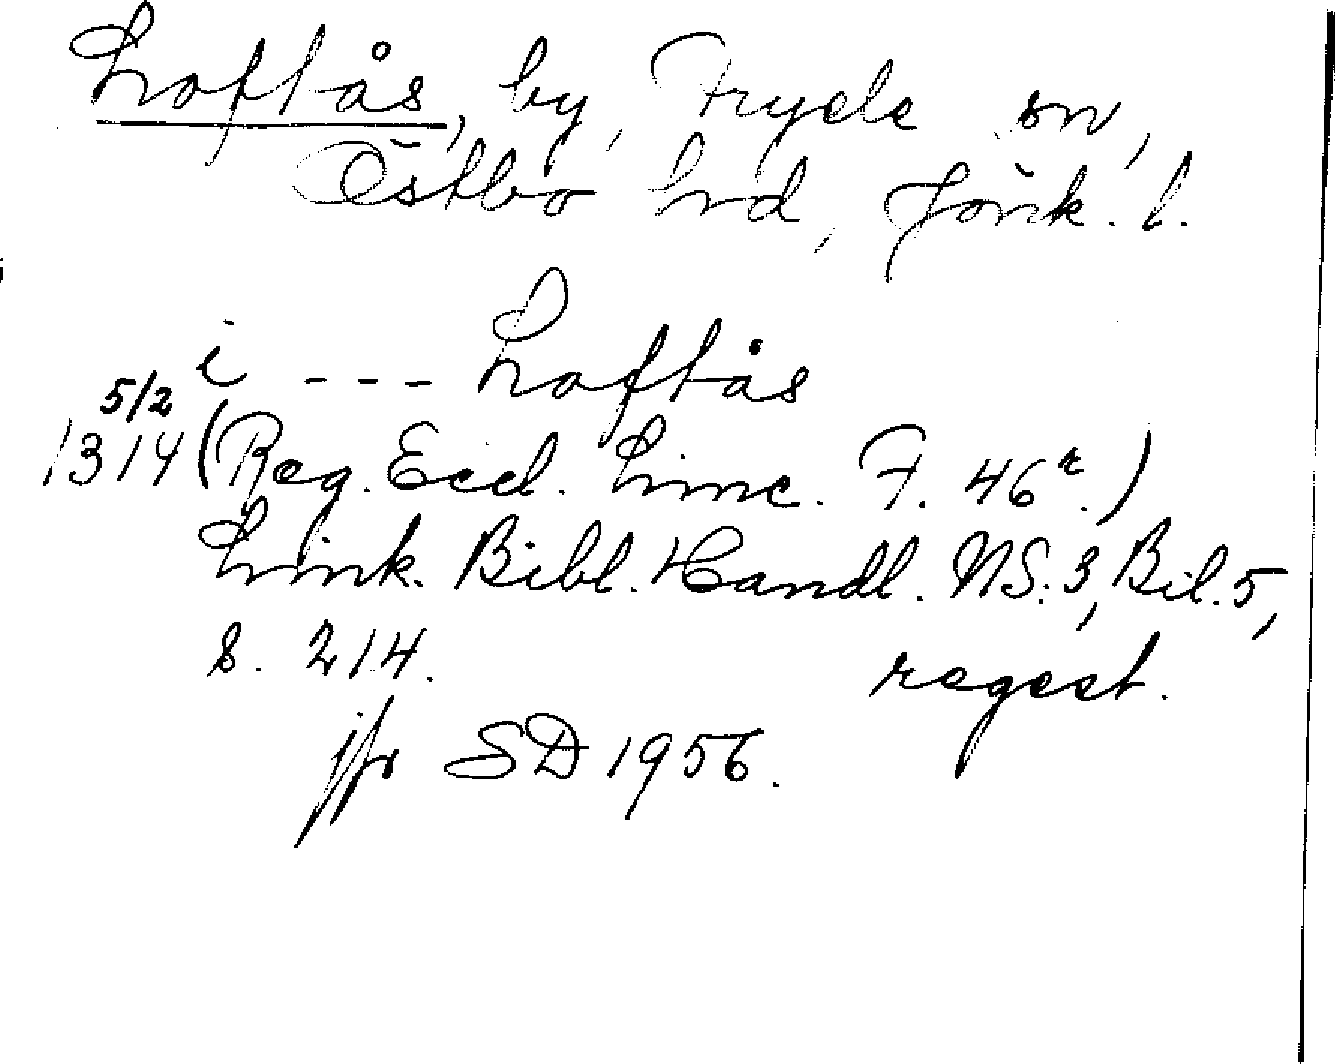 Loftås, by, Fryele sn,
Östbo hrd, Jönk. l.
i --- Loftås
5/2
1314 (Reg. Eccl. Linc. F. 46r.)
Link. Bibl. Handl. NS. 3, Bil. 5,
s. 214. regest.
jfr SD 1956.